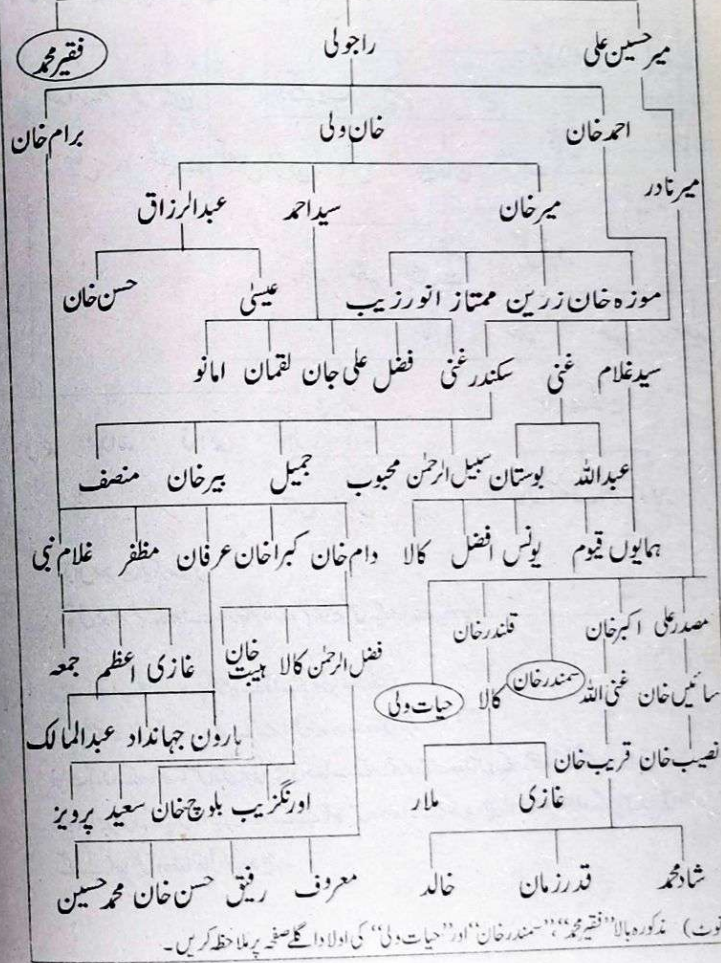 میر حسین علی راجولی فقیر محمد
احمد خان خان ولی برام خان
میر نادر
میر خان سید احمد عبدالرزاق
موزہ خان زرین ممتاز انورزیب عیسیٰ حسن خان
سید غلام غنی سکندر غنی فضل علی جان لقمان امانو
عبداللہ بوستان سبیل الرحمٰن محبوب جمیل بیر خان منصف
ہمایوں قیوم یونس افضل کالا دام خان کبرا خان عرفان مظفر غلام نبی
مصدر علی اکبر خان قلندر خان فضل الرحمٰن کالا ہیبت خان غازی اعظم جمعہ
سائیں خان غنی اللہ سمندر خان کالا حیات ولی
ہارون جہانداد عبدالمالک
نصیب خان قریب خان
غازی ملار اورنگزیب بلوچ خان سعید پرویز
شاد محمد قدر زمان خالد معروف رفیق حسن خان محمد حسین
نوٹ) مذکورہ بالا "فقیر محمد"، "سمندر خان" اور "حیات ولی" کی اولاد اگلے صفحہ پر ملاحظہ کریں۔